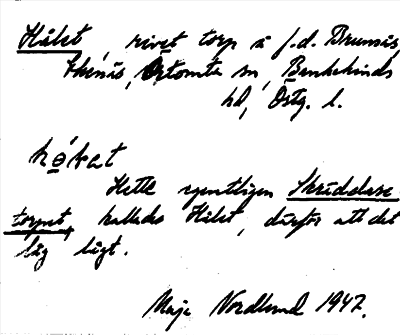 Hålet, rivet torp å f.d. Brunsås,
Ekenäs, Örtomta sn, Bankekinds
hd, Östg. l.
hø̀ket
Hette egentligen Skräddare-
torpet, kallades Hålet, därför att det
låg lågt.
Maja Nordlund 1947.